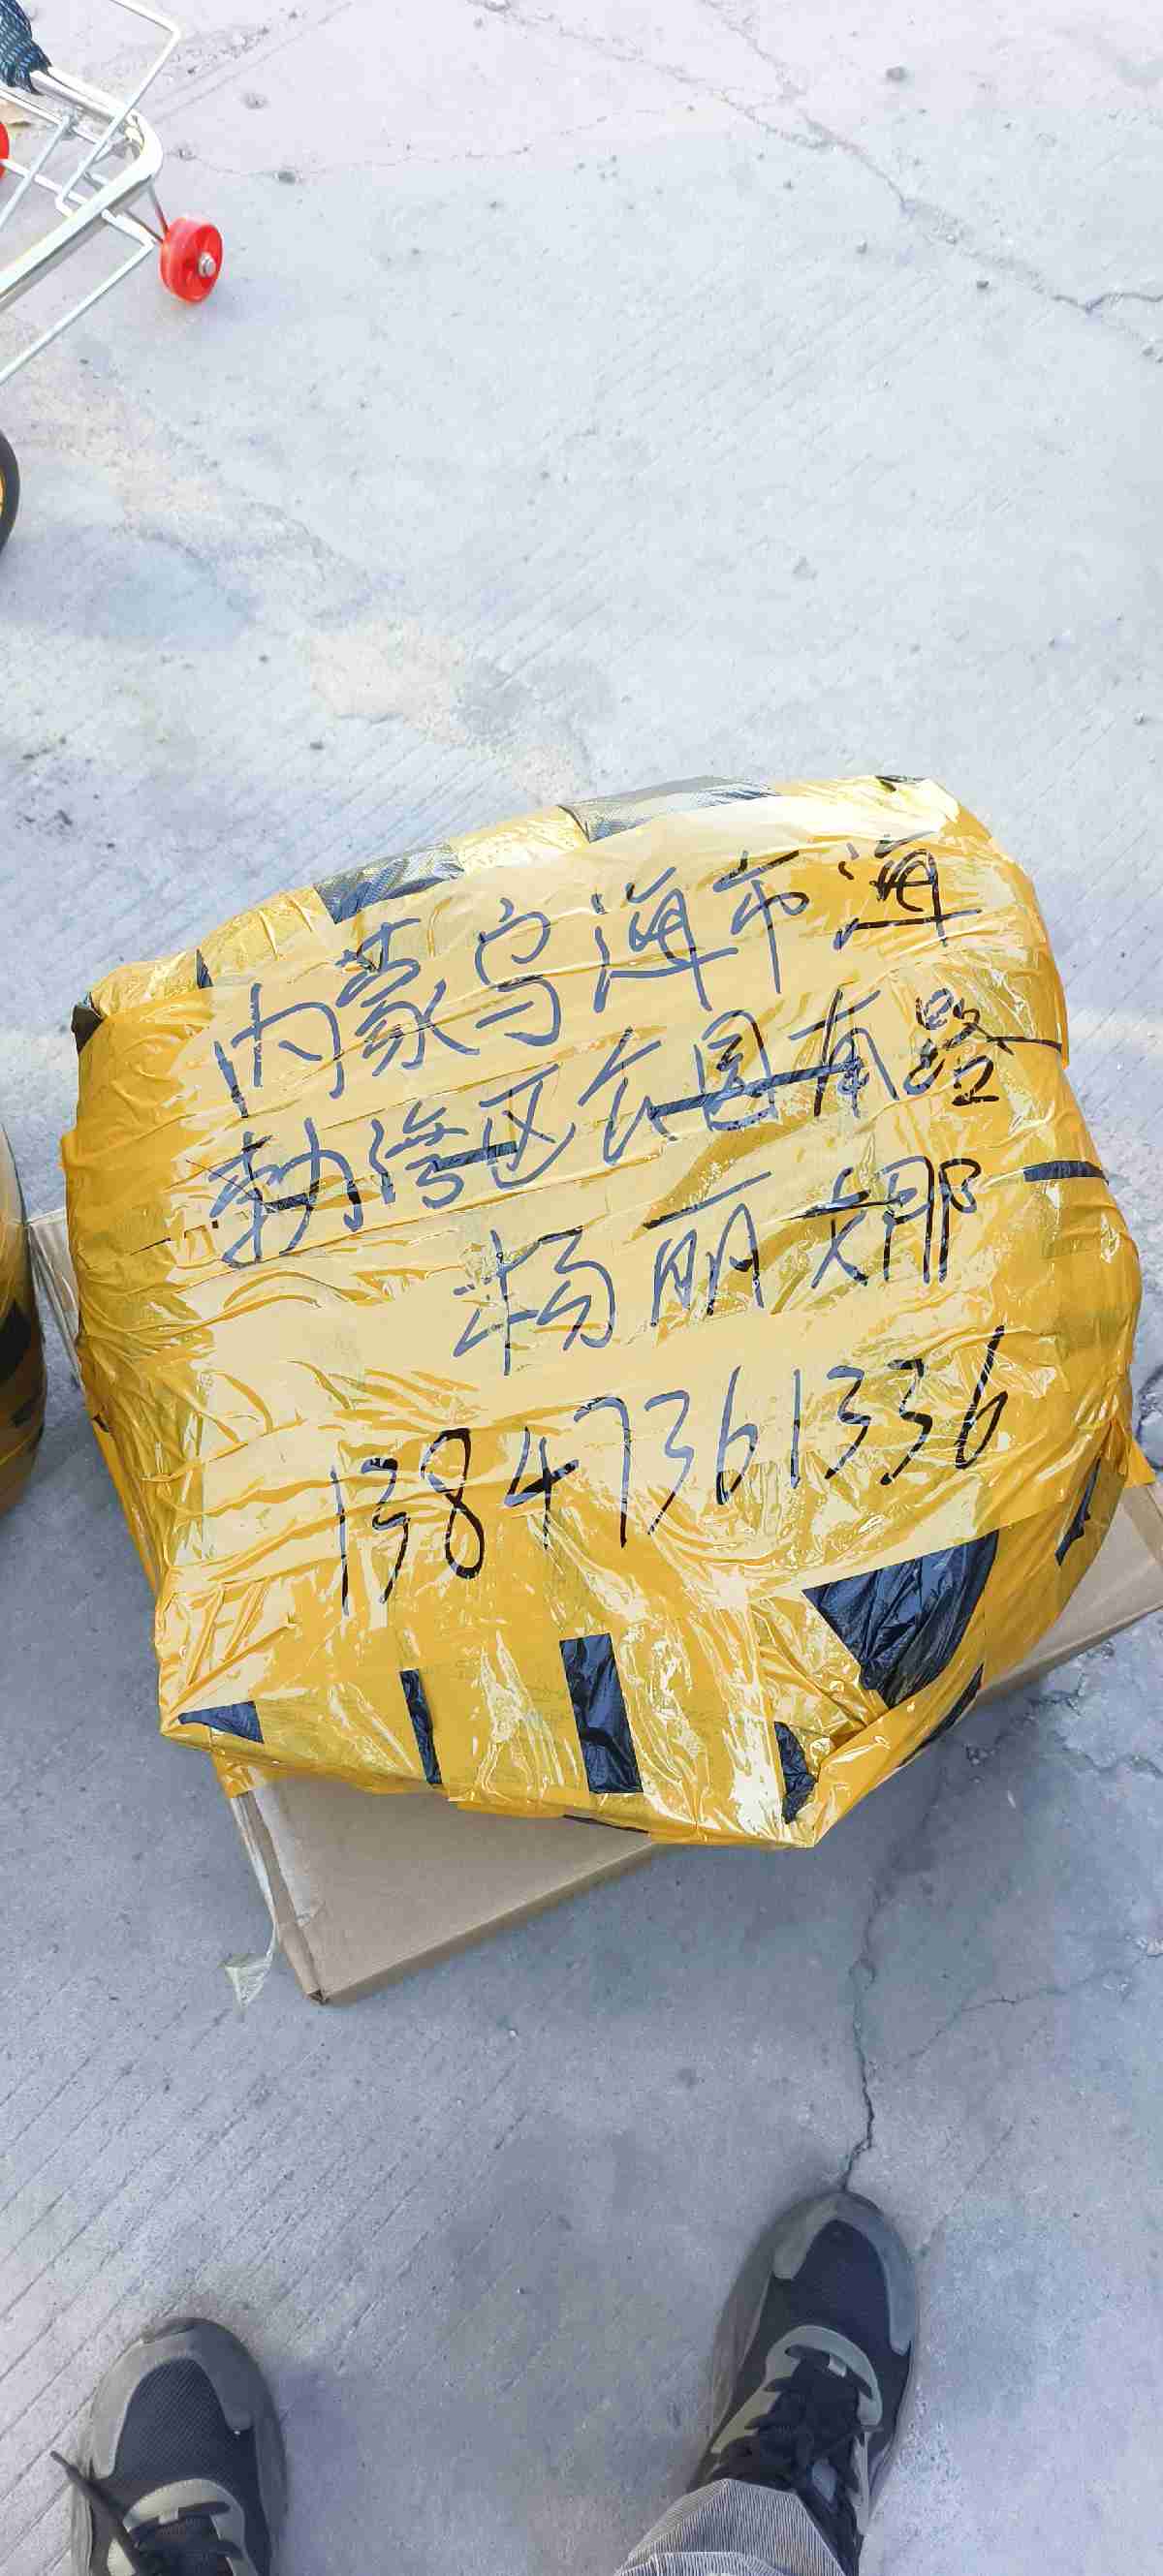 内蒙乌海市海
勃湾区公园南路
杨丽娜
13847361336